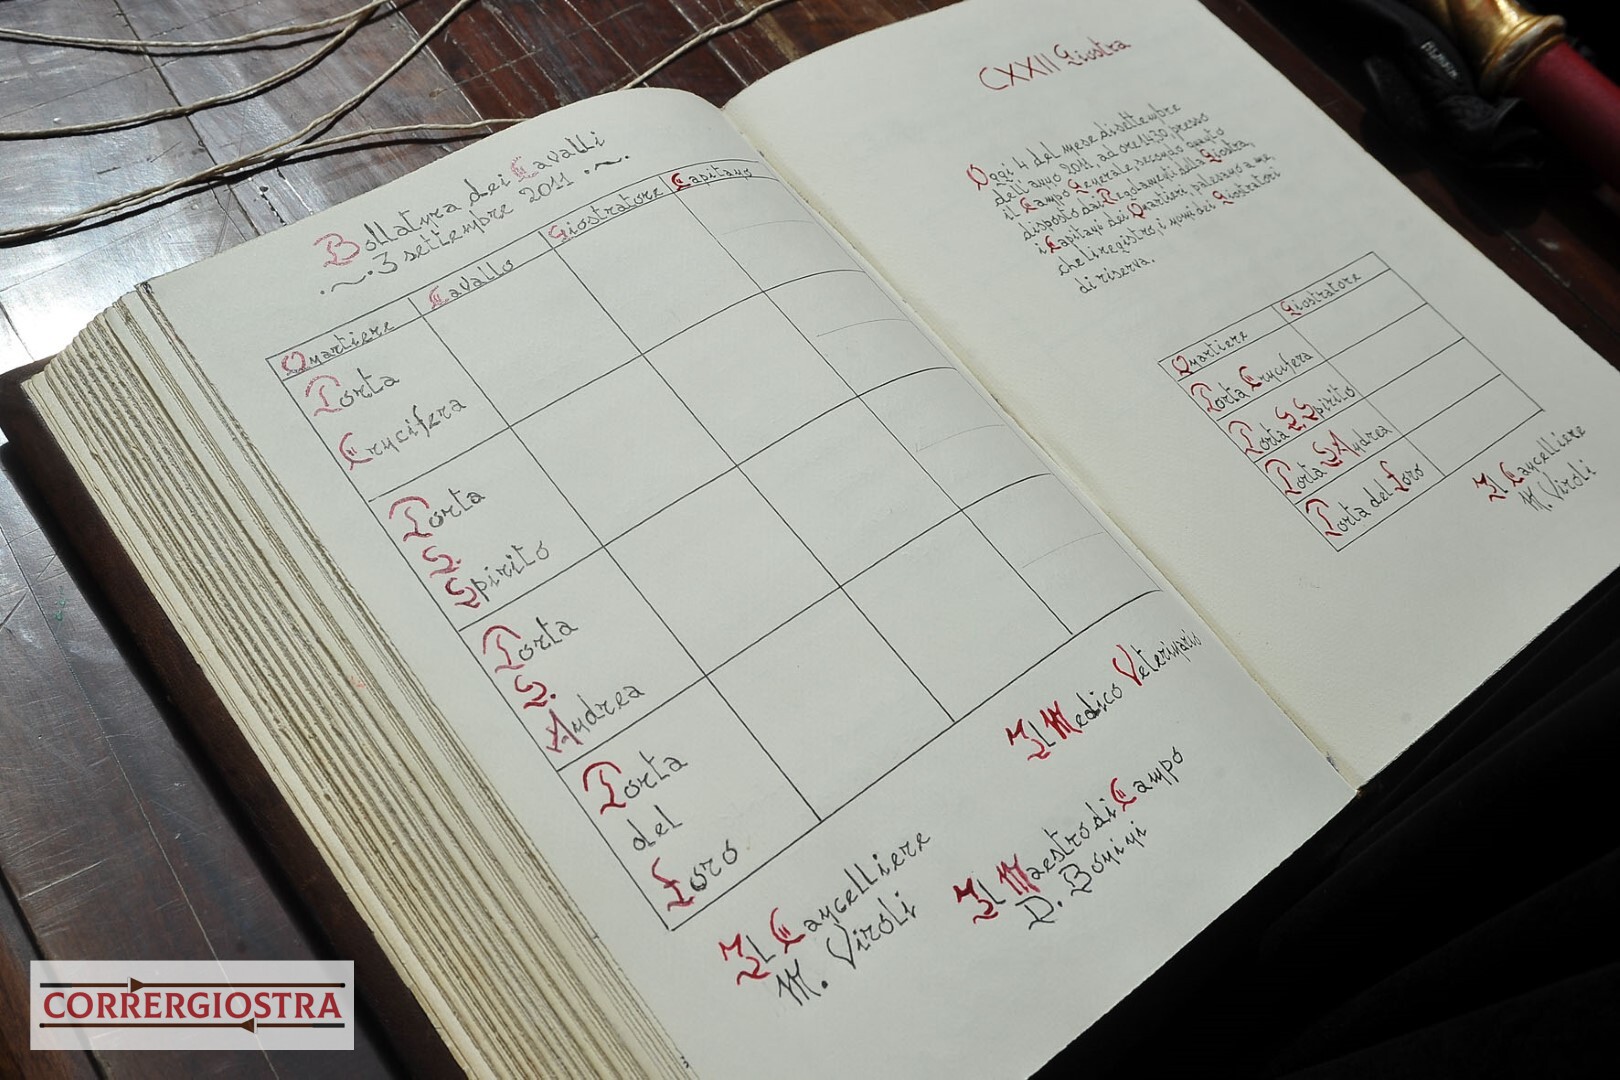 Bollatura dei Cavalli
3 settembre 2011
Quartiere Cavallo Giostratore Capitano
Porta
Crucifera
Porta
S.
Spirito
Porta
S.
Andrea
Porta
del
Foro
Il Cancelliere
M. Viroli
Il Maestro di Campo
D. Bonini
Il Medico Veterinario
CXXII Giostra
Oggi 4 del mese di settembre
dell'anno 2011 ad ore 14.30 presso
il Campo Generale, secondo quanto
disposto dai Regolamenti della Giostra,
i Capitani dei Quartieri palesano a me,
che li registro, i nomi dei Giostratori
di riserva.
Quartiere Giostratore
Porta Crucifera
Porta S. Spirito
Porta S. Andrea
Porta del Foro
Il Cancelliere
M. Viroli
CORRERGIOSTRA